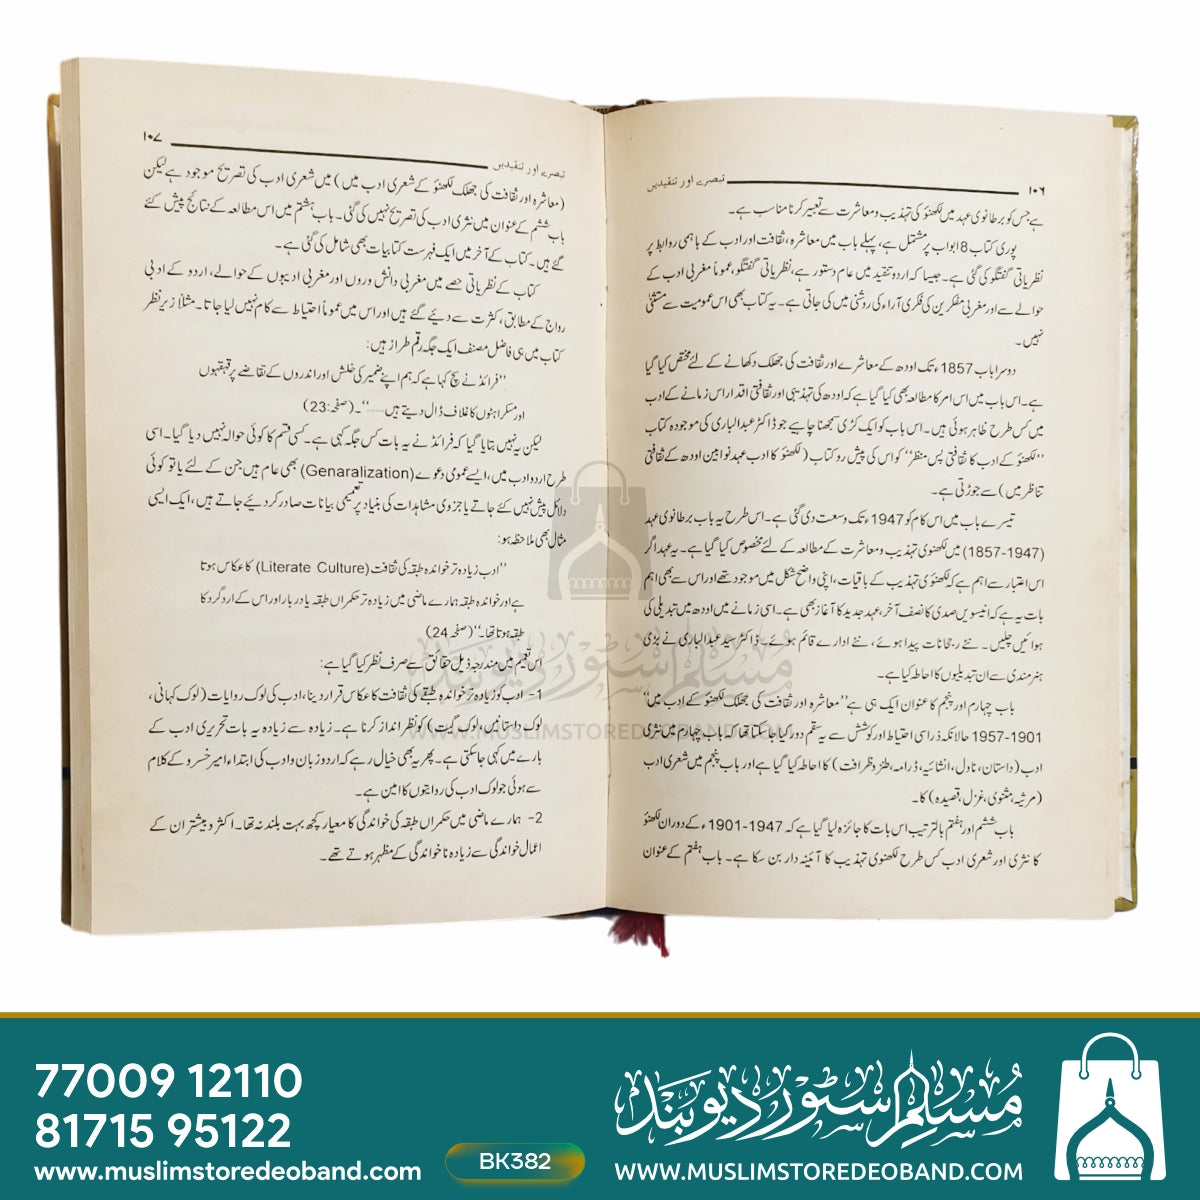 ۱۰۶ تبصرے اور تنقیدیں
ہے جس کو برطانوی عہد میں لکھنؤ کی تہذیب و معاشرت سے تعبیر کرنا مناسب ہے۔
پوری کتاب 8 ابواب پر مشتمل ہے، پہلے باب میں معاشرہ، ثقافت اور ادب کے باہمی روابط پر
نظریاتی گفتگو کی گئی ہے۔ جیسا کہ اردو تنقید میں عام دستور ہے، نظریاتی گفتگو، عموماً مغربی ادب کے
حوالے سے اور مغربی مفکرین کی فکری آراء کی روشنی میں کی جاتی ہے۔ یہ کتاب بھی اس عمومیت سے مستثنیٰ
نہیں۔
دوسرا باب 1857ء تک اودھ کے معاشرے اور ثقافت کی جھلک دکھانے کے لئے مختص کیا گیا
ہے۔ اس باب میں اس امر کا مطالعہ بھی کیا گیا ہے کہ اودھ کی تہذیبی اور ثقافتی اقدار اس زمانے کے ادب
میں کس طرح ظاہر ہوئی ہیں۔ اس باب کو ایک کڑی سمجھنا چاہیے جو ڈاکٹر عبدالباری کی موجودہ کتاب
''لکھنؤ کے ادب کا ثقافتی پس منظر'' کو اس کی پیش رو کتاب (لکھنؤ کا ادب عہد نوابین اودھ کے ثقافتی
تناظر میں) سے جوڑتی ہے۔
تیسرے باب میں اس کام کو 1947ء تک وسعت دی گئی ہے۔ اس طرح یہ باب برطانوی عہد
(1857-1947) میں لکھنوی تہذیب و معاشرت کے مطالعہ کے لئے مخصوص کیا گیا ہے۔ یہ عہد اگر
اس اعتبار سے اہم ہے کہ لکھنوی تہذیب کے باقیات، اپنی واضح شکل میں موجود تھے اور اس سے بھی اہم
بات یہ ہے کہ انیسویں صدی کا نصف آخر، عہد جدید کا آغاز بھی ہے۔ اسی زمانے میں اودھ میں تبدیلی کی
ہوائیں چلیں۔ نئے رجحانات پیدا ہوئے، نئے ادارے قائم ہوئے۔ ڈاکٹر سید عبدالباری نے بڑی
ہنرمندی سے ان تبدیلیوں کا احاطہ کیا ہے۔
باب چہارم اور پنجم کا عنوان ایک ہی ہے ''معاشرہ اور ثقافت کی جھلک لکھنؤ کے ادب میں''
1957-1901 حالانکہ ذرا سی احتیاط اور کوشش سے یہ سقم دور کیا جا سکتا تھا کہ باب چہارم میں نثری
ادب (داستان، ناول، انشائیہ، ڈرامہ، طنز و ظرافت) کا احاطہ کیا گیا ہے اور باب پنجم میں شعری ادب
(مرثیہ، مثنوی، غزل، قصیدہ) کا۔
باب ششم اور ہفتم بالترتیب اس بات کا جائزہ لیا گیا ہے کہ 1947-1901ء کے دوران لکھنؤ
کا نثری اور شعری ادب کس طرح لکھنوی تہذیب کا آئینہ دار بن سکا ہے۔ باب ہفتم کے عنوان
تبصرے اور تنقیدیں ۱۰۷
(معاشرہ اور ثقافت کی جھلک لکھنؤ کے شعری ادب میں) میں شعری ادب کی تصریح موجود ہے لیکن
باب ششم کے عنوان میں نثری ادب کی تصریح نہیں کی گئی۔ باب ہشتم میں اس مطالعہ کے نتائج پیش کئے
گئے ہیں۔ کتاب کے آخر میں ایک فہرست کتابیات بھی شامل کی گئی ہے۔
کتاب کے نظریاتی حصے میں مغربی دانش وروں اور مغربی ادیبوں کے حوالے، اردو کے ادبی
رواج کے مطابق، کثرت سے دیئے گئے ہیں اور اس میں عموماً احتیاط سے کام نہیں لیا جاتا۔ مثلاً زیر نظر
کتاب میں ہی فاضل مصنف ایک جگہ رقم طراز ہیں:
''فرائڈ نے سچ کہا ہے کہ ہم اپنے ضمیر کی خلش اور اندروں کے تقاضے پر قہقہوں
اور مسکراہٹوں کا غلاف ڈال دیتے ہیں......''۔ (صفحہ:23)
لیکن یہ نہیں بتایا گیا کہ فرائڈ نے یہ بات کس جگہ کہی ہے۔ کسی قسم کا کوئی حوالہ نہیں دیا گیا۔ اسی
طرح اردو ادب میں، ایسے عمومی دعوے (Genaralization) بھی عام ہیں جن کے لئے یا تو کوئی
دلائل پیش نہیں کئے جاتے یا جزوی مشاہدات کی بنیاد پر تعمیمی بیانات صادر کر دیئے جاتے ہیں، ایک ایسی
مثال بھی ملاحظہ ہو:
''ادب زیادہ تر خواندہ طبقہ کی ثقافت (Literate Culture) کا عکاس ہوتا
ہے اور خواندہ طبقہ ہمارے ماضی میں زیادہ تر حکمراں طبقہ یا دربار اور اس کے ارد گرد کا
طبقہ ہوتا تھا۔'' (صفحہ 24)
اس تعمیم میں مندرجہ ذیل حقائق سے صرف نظر کیا گیا ہے:
1- ادب کو زیادہ تر خواندہ طبقے کی ثقافت کا عکاس قرار دینا، ادب کی لوک روایات (لوک کہانی،
لوک داستانیں، لوک گیت) کو نظر انداز کرنا ہے۔ زیادہ سے زیادہ یہ بات تحریری ادب کے
بارے میں کہی جا سکتی ہے۔ پھر یہ بھی خیال رہے کہ اردو زبان و ادب کی ابتداء امیر خسرو کے کلام
سے ہوئی جو لوک ادب کی روایتوں کا امین ہے۔
2- ہمارے ماضی میں حکمراں طبقہ کی خواندگی کا معیار کچھ بہت بلند نہ تھا۔ اکثر و بیشتر ان کے
اعمال خواندگی سے زیادہ ناخواندگی کے مظہر ہوتے تھے۔
مسلم سٹور دیوبند
WWW.MUSLIMSTOREDEOBAND.COM
77009 12110
81715 95122
www.muslimstoredeoband.com
BK382
مسلم سٹور دیوبند
WWW.MUSLIMSTOREDEOBAND.COM